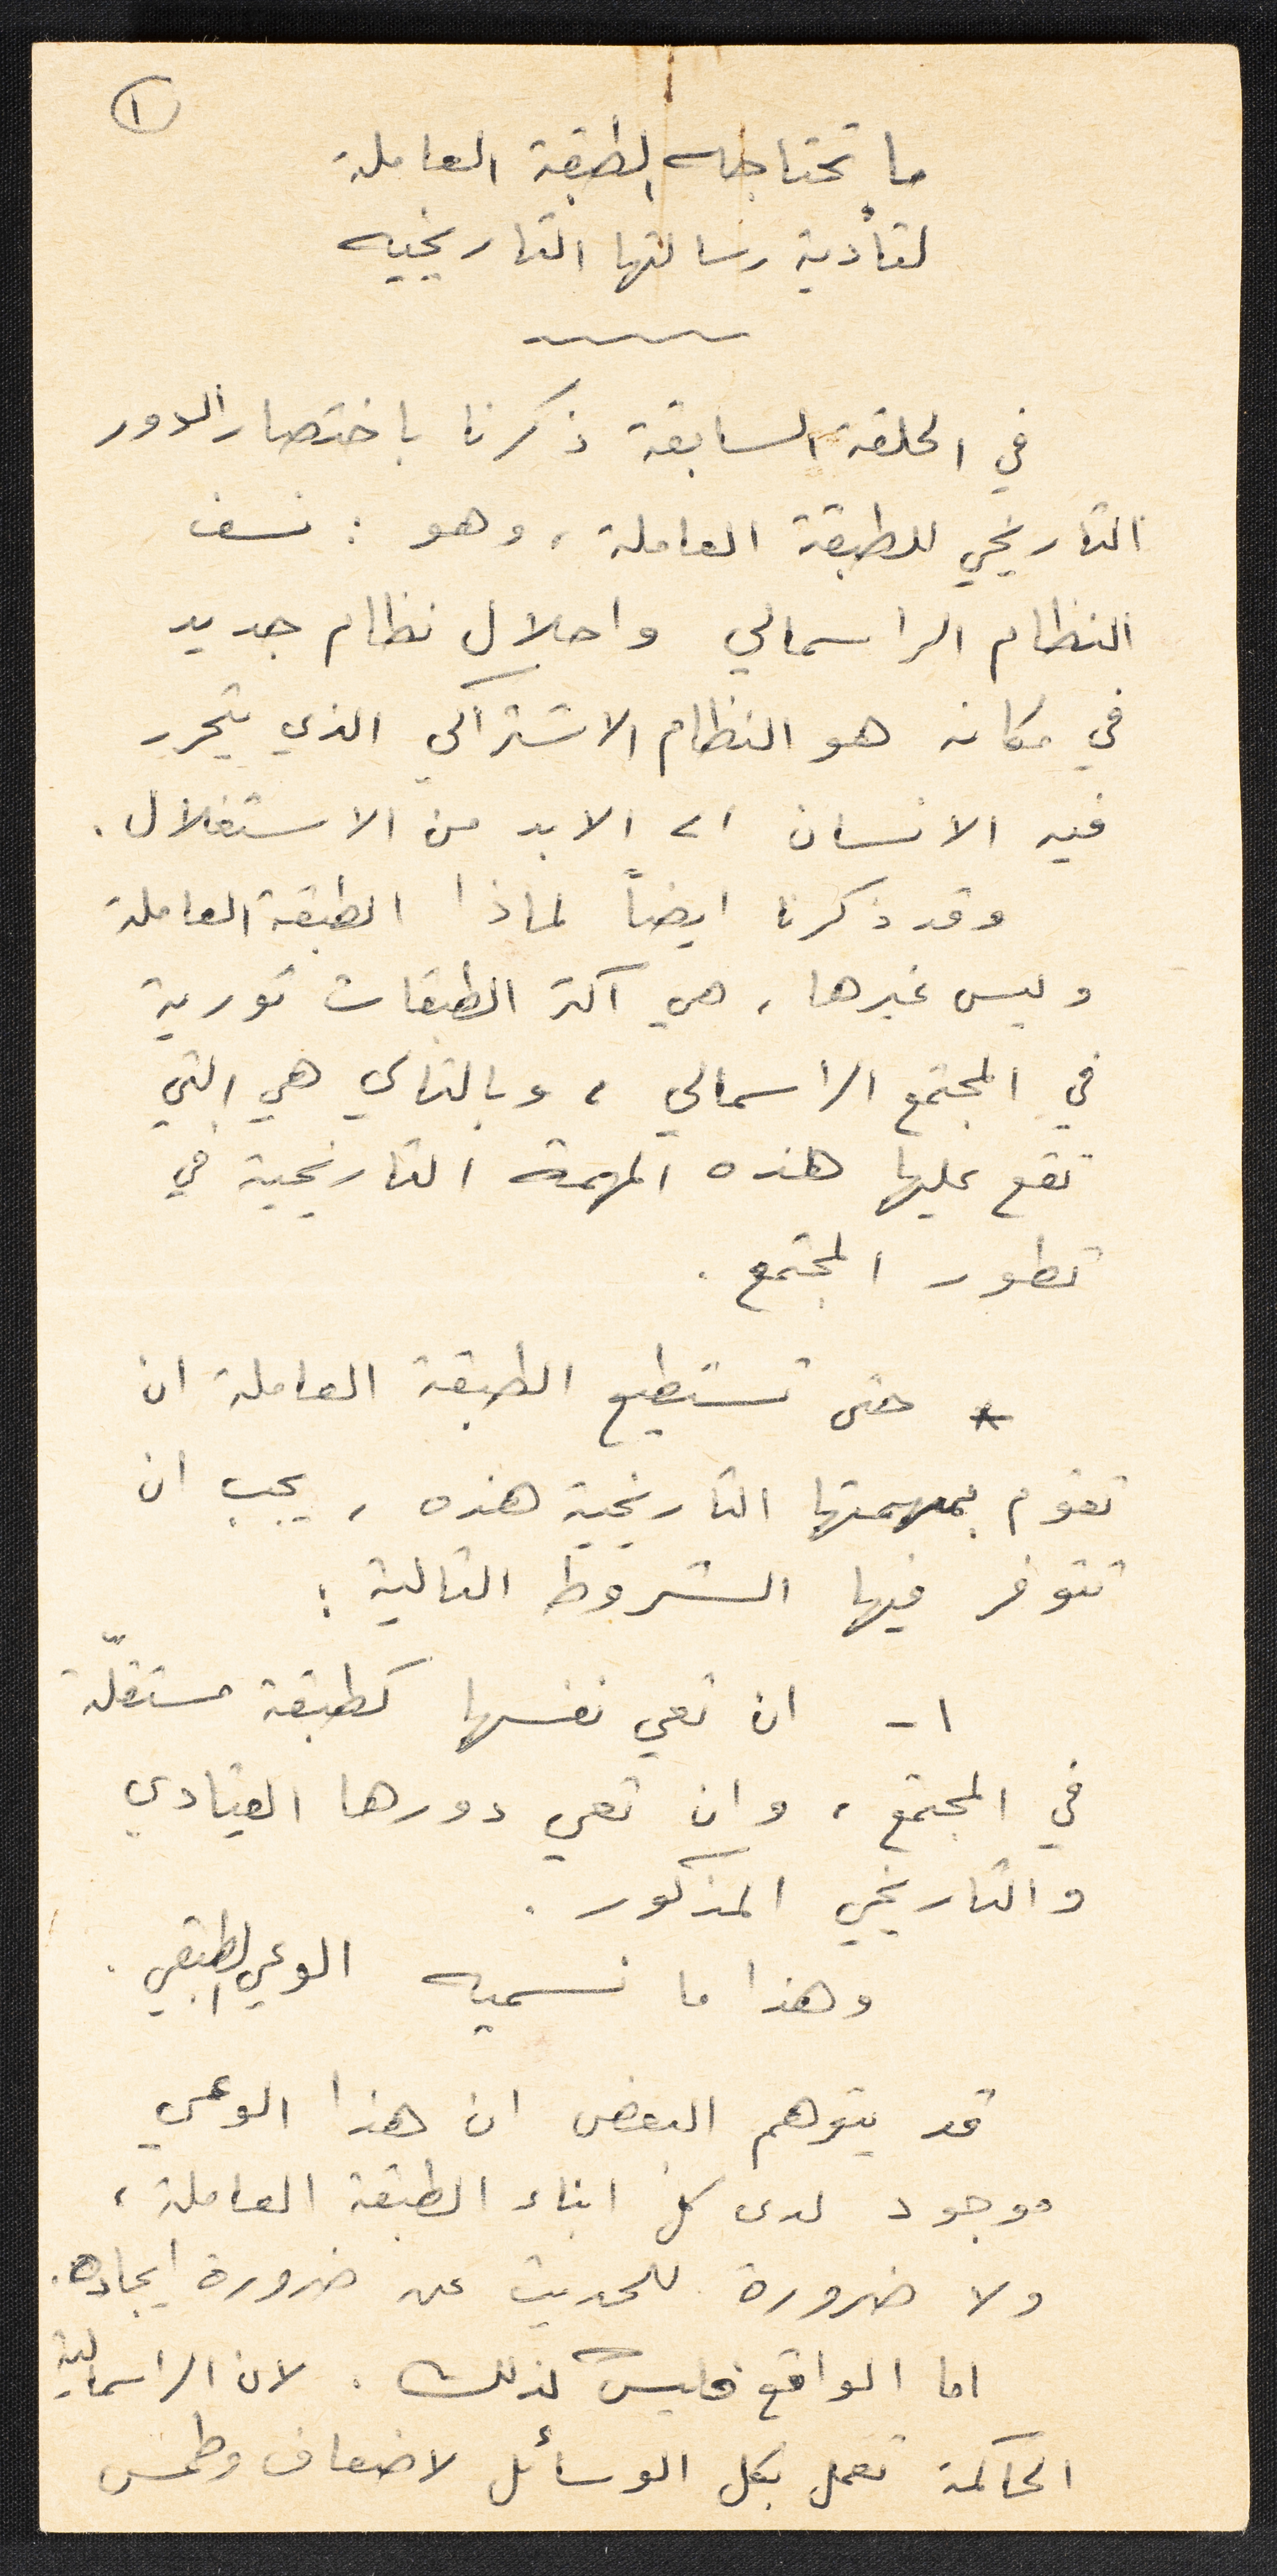 ١
ما تحتاجه الطبقة العاملة
لتأدية رسالتها التاريخيه
في الحلقة السابقة ذكرنا باختصار الدور
التاريخي للطبقة العاملة ، وهو : نسف
النظام الراسمالي واحلال نظام جديد
في مكانه هو النظام الاشتراكي الذي يتحرر
فيه الانسان الى الابد من الاستغلال .
وقد ذكرنا ايضاً لماذا الطبقة العاملة
وليس غيرها ، هي اكثر الطبقات ثورية
في المجتمع الراسمالي ، وبالتالي هي التي
تقع عليها هذه المهمة التاريخية في
تطور المجتمع .
* حتى تستطيع الطبقة العاملة ان
تقوم بمهمتها التاريخية هذه ، يجب ان
تتوفر فيها الشروط التالية :
١ - ان تعي نفسها كطبقة مستقلّة
في المجتمع ، وان تعي دورها القيادي
والتاريخي المذكور .
وهذا ما نسميه الوعي الطبقي .
قد يتوهم البعض ان هذا الوعي
موجود لدى كل ابناء الطبقة العاملة ،
ولا ضرورة للحديث عن ضرورة ايجاده .
اما الواقع فليس كذلك . لان الراسمالية
الحاكمة تعمل بكل الوسائل لاضعاف وطمس